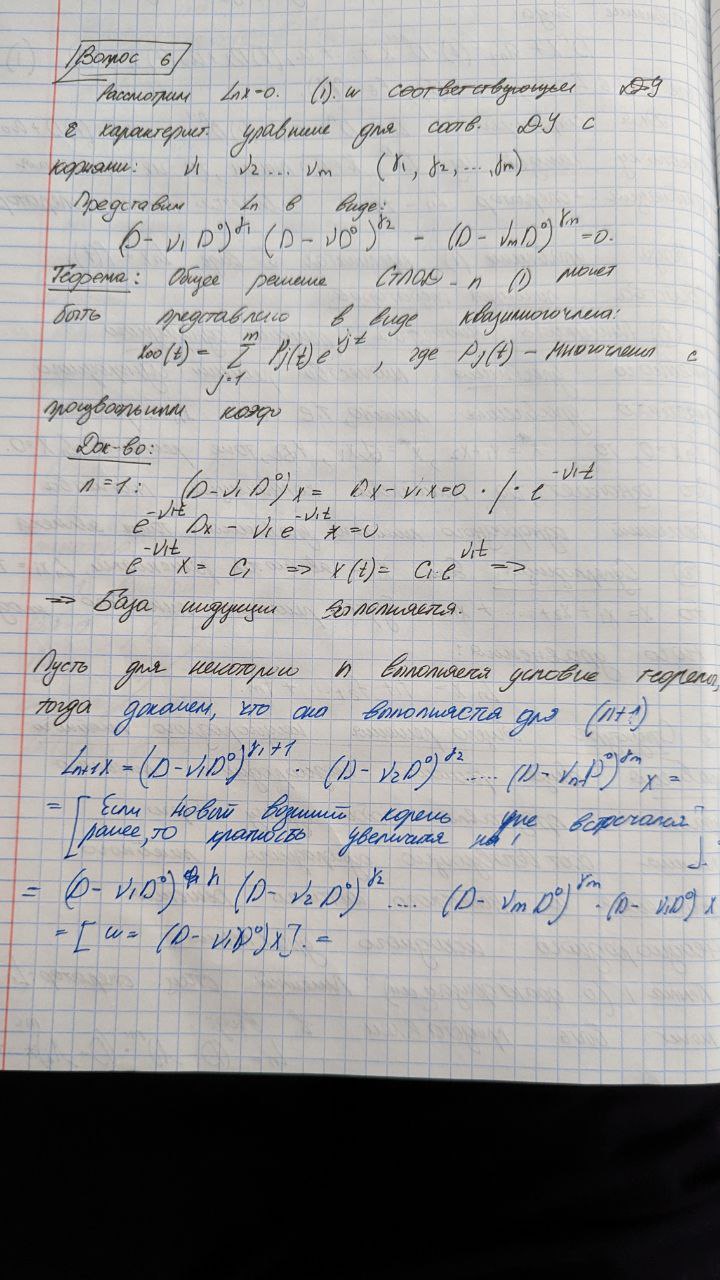 Вопрос 6
Рассмотрим Lnx=0. (1). и соответствующее ДУ
характерист. уравнение для соотв. ДУ с
корнями: ν₁ ν₂ ... νm (γ₁, γ₂, ..., γm)
Представим Ln в виде:
(D - ν₁D⁰)^γ₁ (D - νD⁰)^γ₂ - (D - νmD⁰)^γm = 0.
Теорема: Общее решение СтЛОД - n (1) может
быть представлено в виде квазимногочлена:
xоо(t) = Σ_{j=1}^{m} Pj(t) e^{νjt}, где Pj(t) - многочлены с
произвольными коэф
Док-во:
n=1: (D - ν₁D⁰)x = Dx - ν₁x = 0 · / · e^{-ν₁t}
e^{-ν₁t} Dx - ν₁ e^{-ν₁t} x = 0
e^{-ν₁t} x = C₁ => x(t) = C₁·e^{ν₁t} =>
=> База индукции выполняется.
Пусть для некоторого n выполняется условие теоремы,
тогда докажем, что она выполняется для (n+1)
Ln+1x = (D - ν₁D⁰)^{γ₁+1} · (D - ν₂D⁰)^γ₂ ..... (D - νmD⁰)^γm x =
= [Если новый корень уже встречался
ранее, то кратность увеличится на 1].
= (D - ν₁D⁰)^γ₁ (D - ν₂D⁰)^γ₂ .... (D - νmD⁰)^γm · (D - ν₁D⁰) x
= [w = (D - ν₁D⁰)x]. =